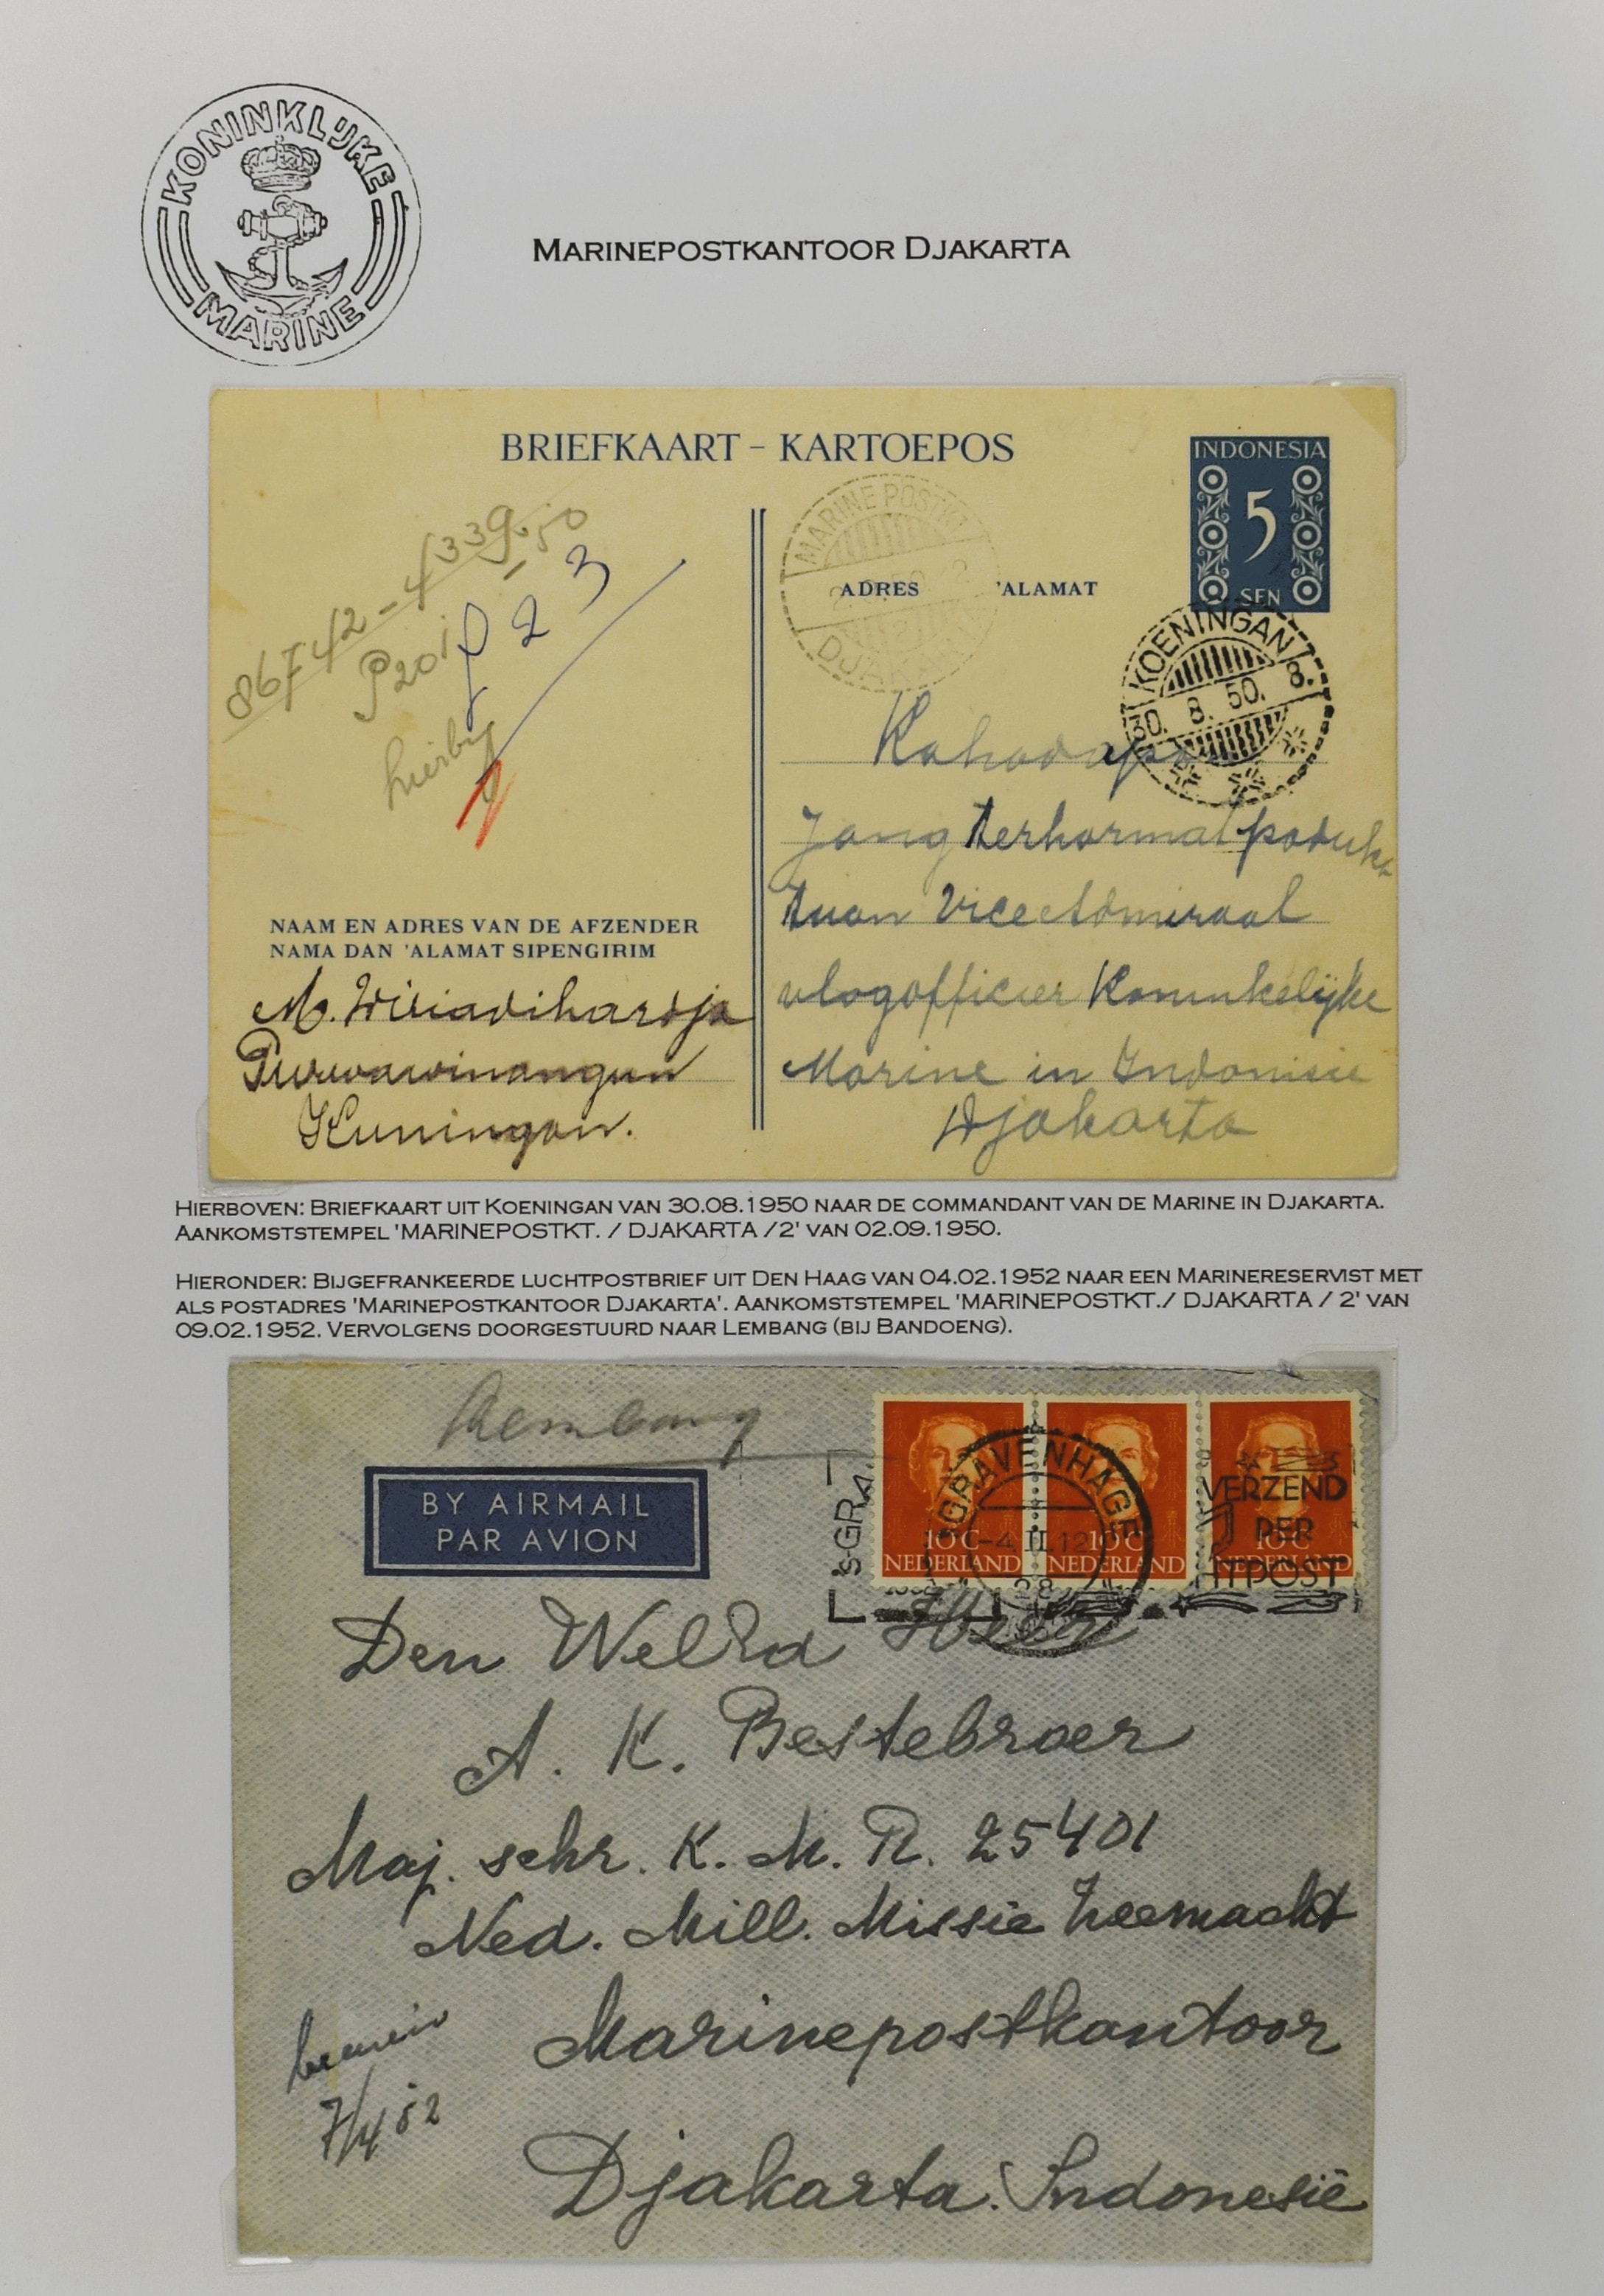 KONINKLIJKE
MARINE
MARINEPOSTKANTOOR DJAKARTA
BRIEFKAART - KARTOEPOS
INDONESIA
5
SEN
MARINE POSTKT
DJAKAR
ADRES 'ALAMAT
KOENINGAN
30. 8. 50. 8.
86742-4339.50
P201
f 2 3
hierby
Kahadapan
Jang terhormat paduka
tuan Vice Admiraal
vlagofficier Koninkelijke
Marine in Indonisie
Djakarta
NAAM EN ADRES VAN DE AFZENDER
NAMA DAN 'ALAMAT SIPENGIRIM
M. Wiriadihardja
Purwawinangun
Kuningan.
HIERBOVEN: BRIEFKAART UIT KOENINGAN VAN 30.08.1950 NAAR DE COMMANDANT VAN DE MARINE IN DJAKARTA.
AANKOMSTSTEMPEL 'MARINEPOSTKT. / DJAKARTA /2' VAN 02.09.1950.
HIERONDER: BIJGEFRANKEERDE LUCHTPOSTBRIEF UIT DEN HAAG VAN 04.02.1952 NAAR EEN MARINERESERVIST MET
ALS POSTADRES 'MARINEPOSTKANTOOR DJAKARTA'. AANKOMSTSTEMPEL 'MARINEPOSTKT./ DJAKARTA / 2' VAN
09.02.1952. VERVOLGENS DOORGESTUURD NAAR LEMBANG (BIJ BANDOENG).
Lembang
BY AIRMAIL
PAR AVION
'S-GRA
'SGRAVENHAGE
-4.II.12
28
10C
NEDERLAND
10C
NEDERLAND
10C
NEDERLAND
VERZEND
PER
HTPOST
Den WelEd Heer
A. K. Bestebroer
Maj. schr. K. M. R. 25401
Ned. Mill. Missie Zeemacht
Marinepostkantoor
7/4 52
Djakarta. Indonesië